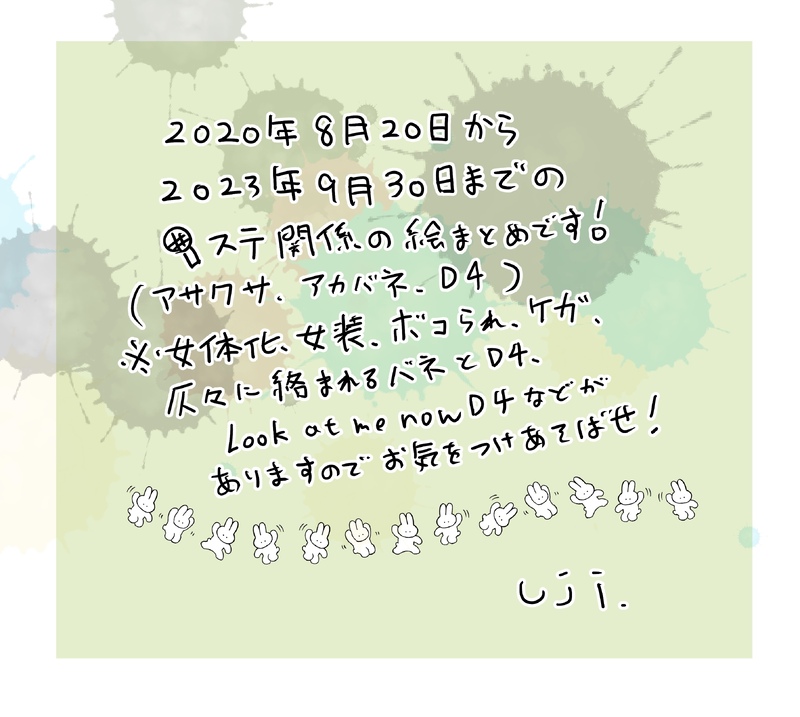 2020年 8月20日から
2023年9月30日までの
ステ関係の絵まとめです!
(アサクサ、アカバネ、D4)
※女体化、女装、ボコられ、ケガ、
仄々に絡まれるバネとD4、
Look at me now D4などが
ありますのでお気をつけあそばせ!
uji.